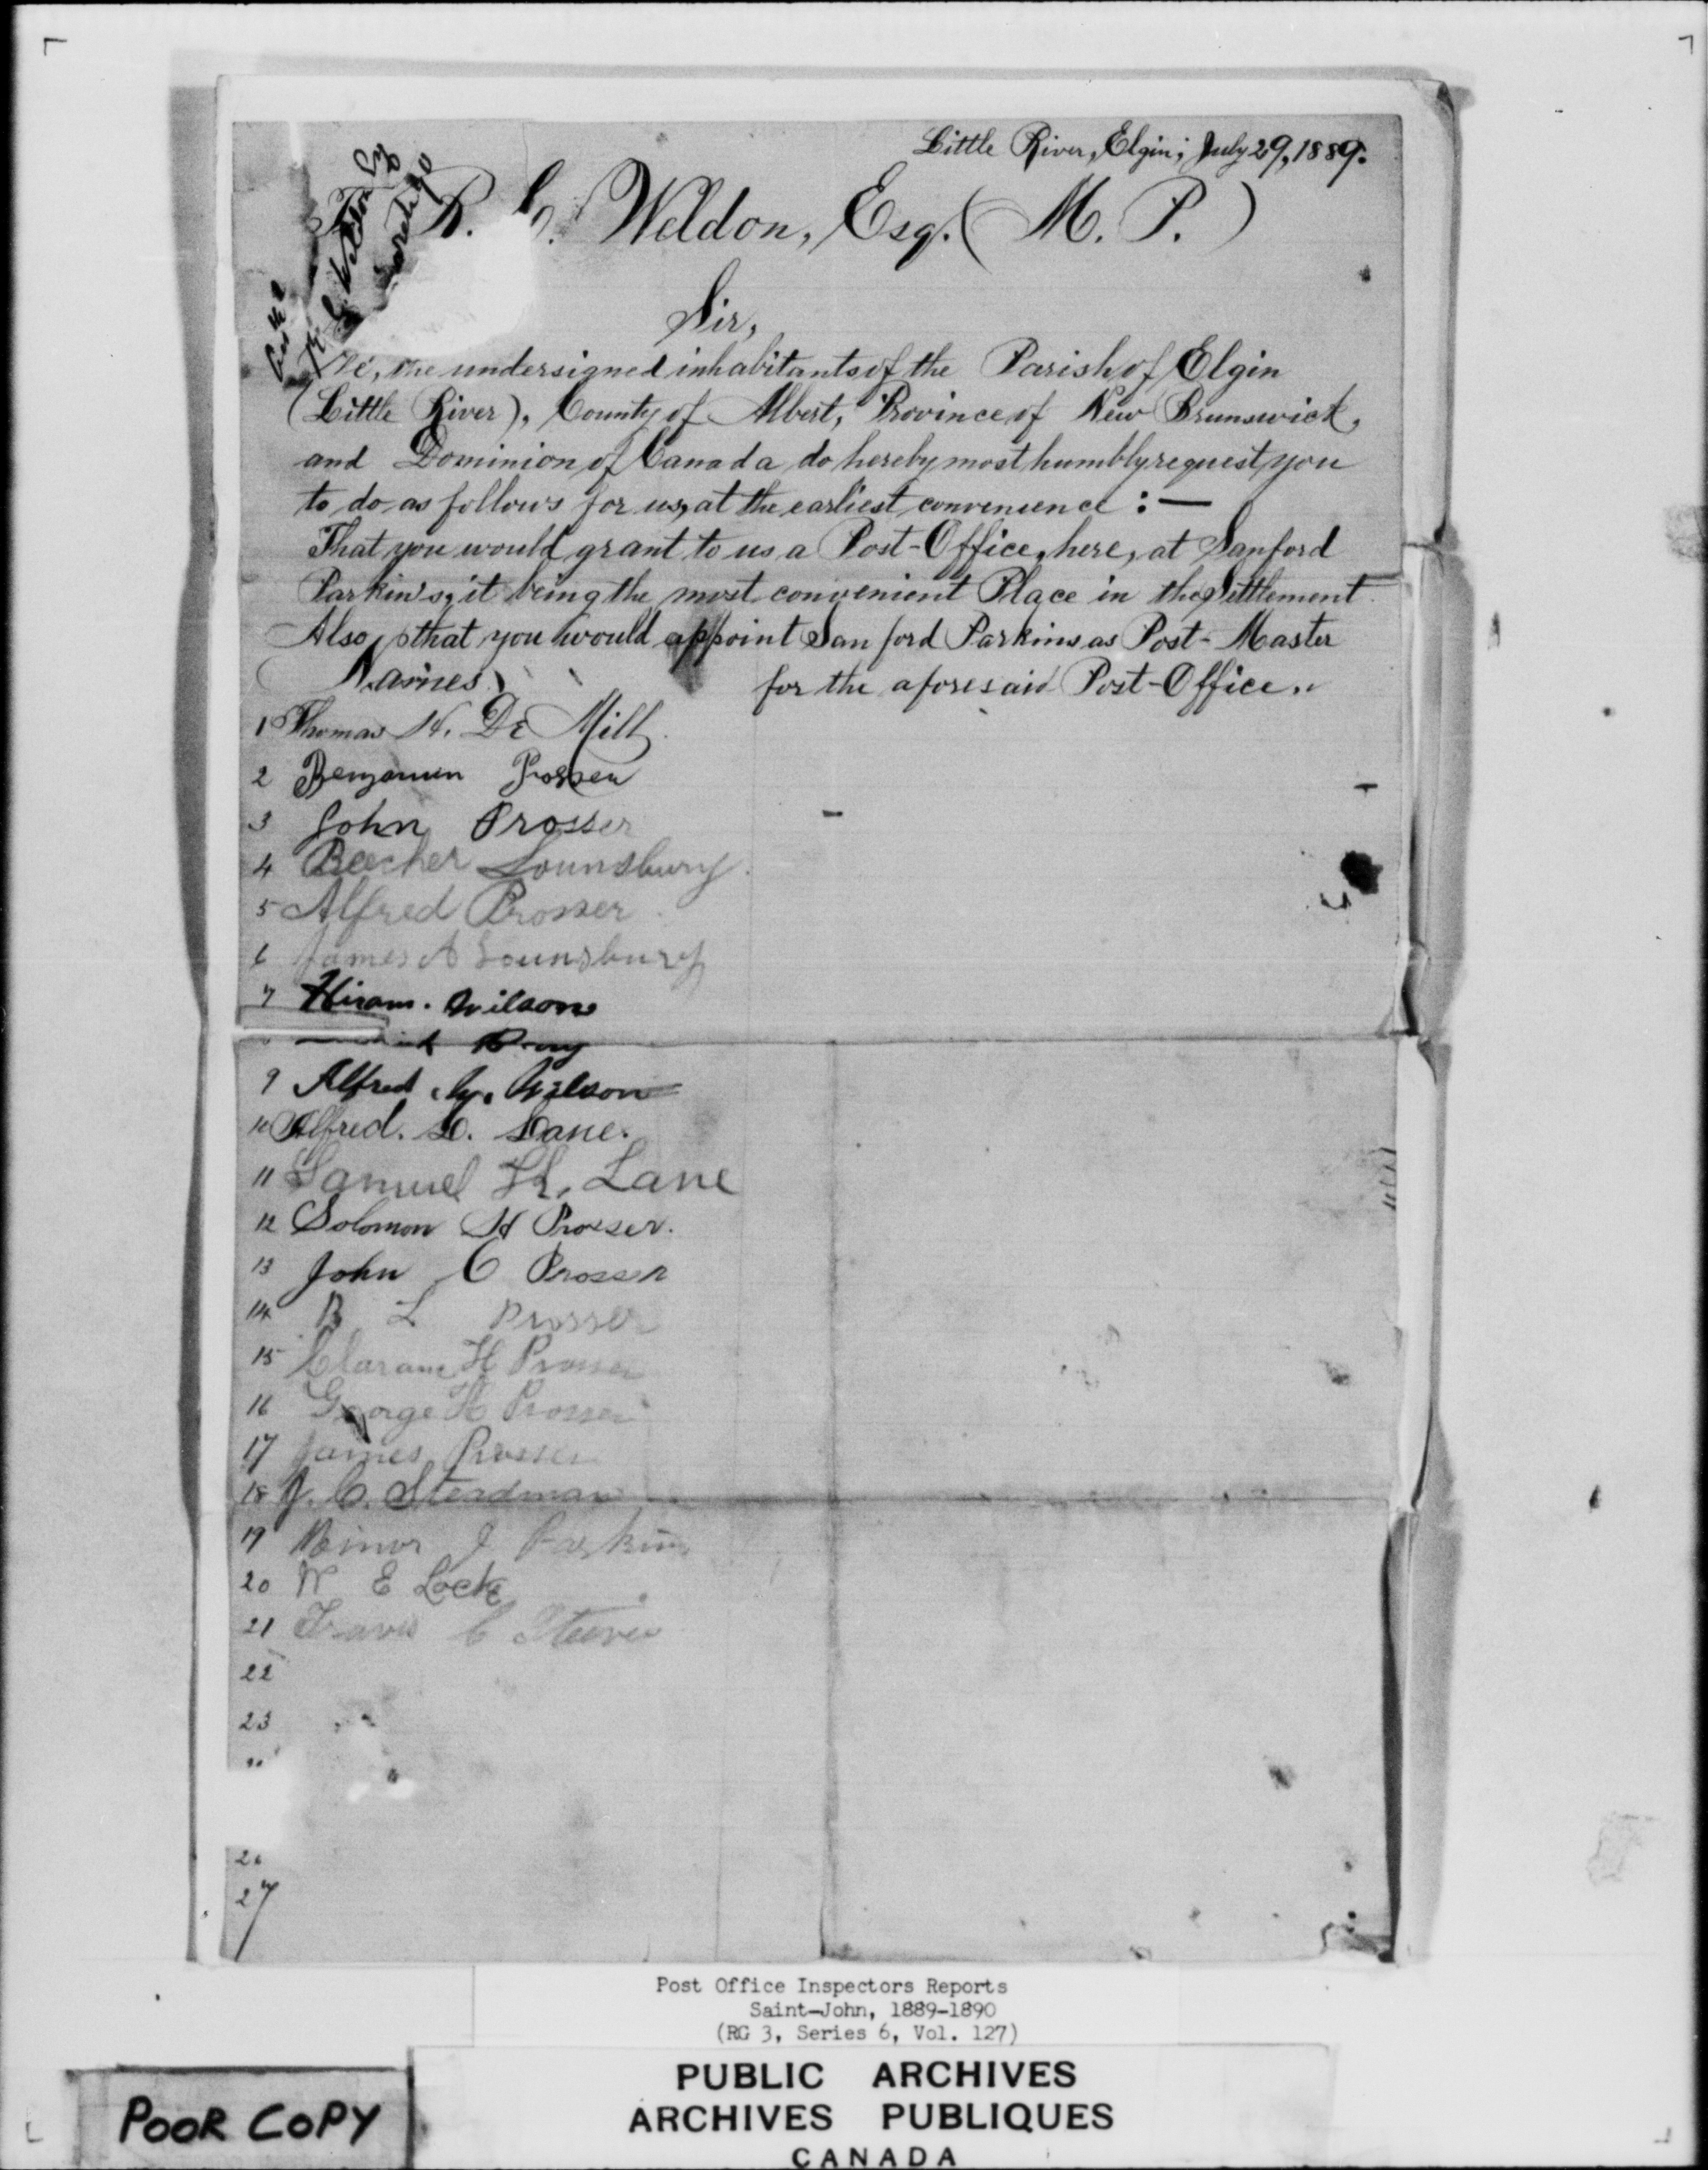 Little River, Elgin; July 29, 1889.
R. C. Weldon, Esq. (M. P.)
R. C. Weldon
Sir,
We, the undersigned inhabitants of the Parish of Elgin
(Little River), County of Albert, Province of New Brunswick,
and Dominion of Canada do hereby most humbly request you
to do as follows for us, at the earliest convenience :—
That you would grant to us a Post-Office, here, at Sanford
Parkin's, it being the most convenient Place in the Settlement.
Also, that you would appoint Sanford Parkins as Post-Master
Names for the aforesaid Post-Office.
1 Thomas H. De Mill
2 Benjamin Prosser
3 John Prosser
4 Beecher Lounsbury
5 Alfred Prosser
6 James A Lounsbury
7 Hiram. Wilson
9 Alfred Wilson
10 Alfred. D. Lane.
11 Samuel H. Lane
12 Solomon H Prosser.
13 John C Prosser
14 B L Prosser
15 H Prosser
16 George H Prosser
17 James Prosser
18 J. C. Steadman
19 J Parkins
20 W E Locke
21 Travis C Steeves
22
23
26
27
Post Office Inspectors Reports
Saint-John, 1889-1890
(RG 3, Series 6, Vol. 127)
PUBLIC ARCHIVES
ARCHIVES PUBLIQUES
CANADA
POOR COPY